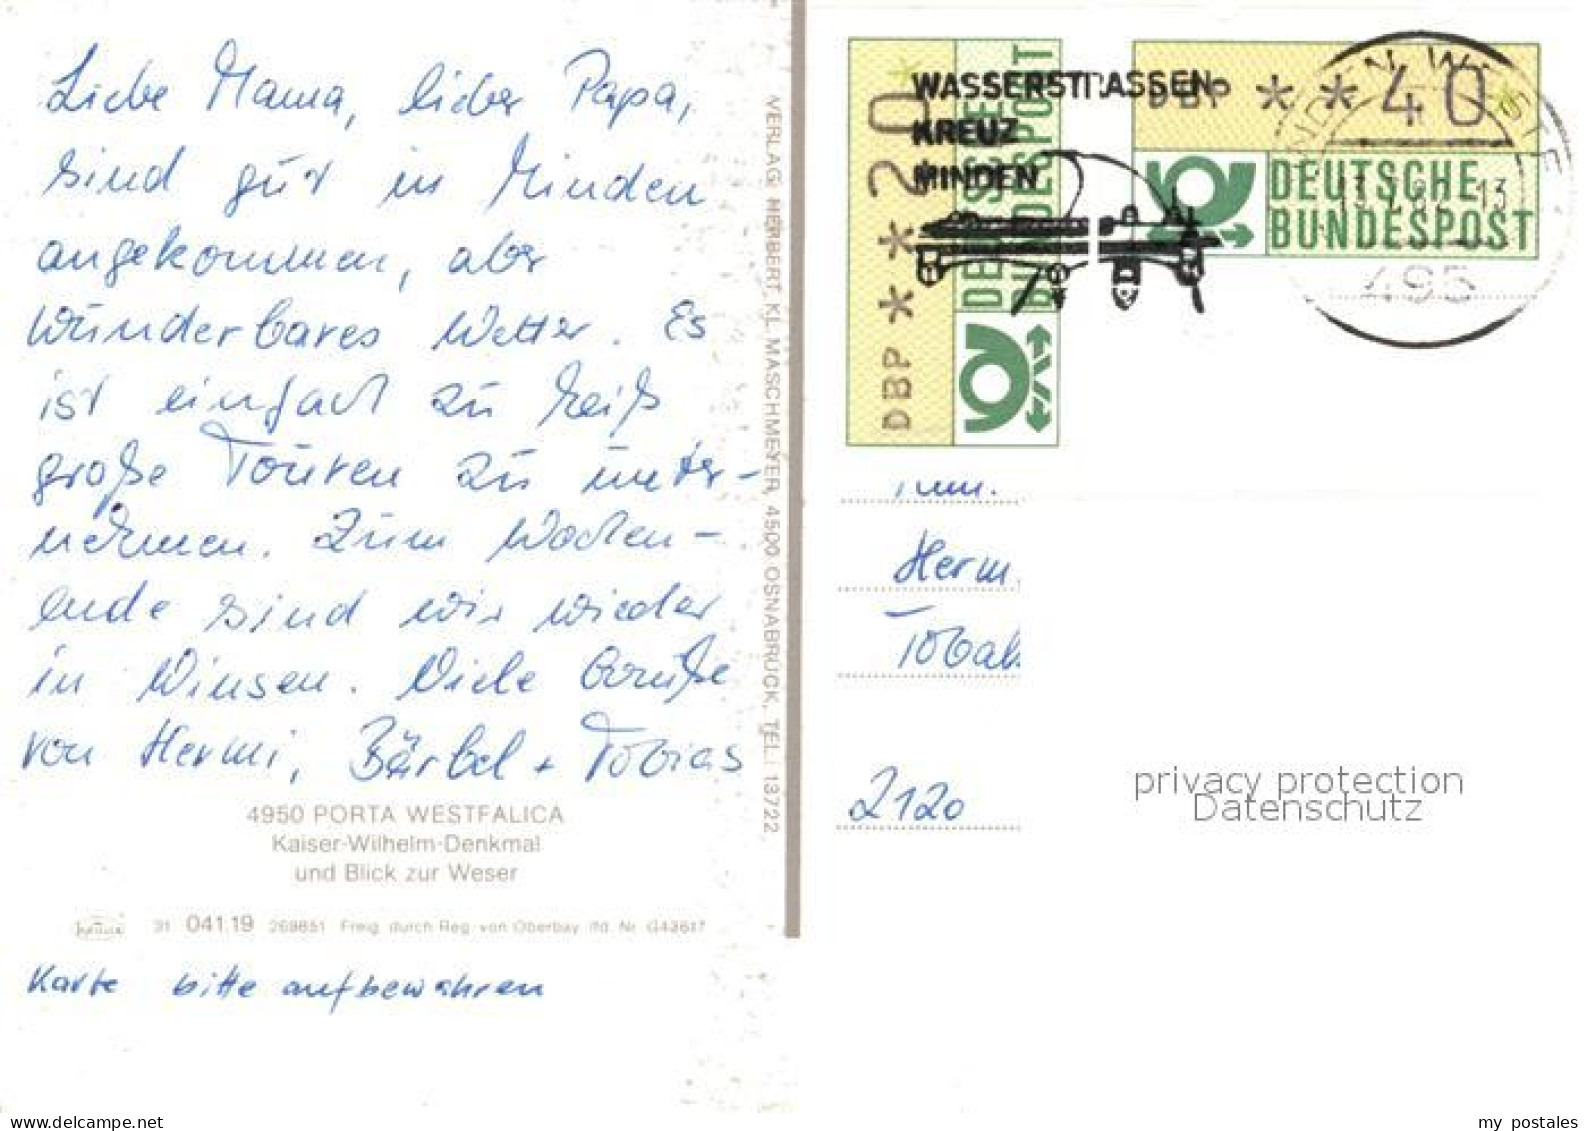 Liebe Mama, lieber Papa,
sind gut in Minden
angekommen, aber
wunderbares Wetter. Es
ist einfach zu heiß
große Touren zu unter-
nehmen. Zum Wochen-
ende sind wir wieder
in Winsen. Viele Grüße
von Hermi, Bärbel + Tobias
4950 PORTA WESTFALICA
Kaiser-Wilhelm-Denkmal
und Blick zur Weser
krüger 31 041.19 268851 Freig. durch Reg. von Oberbay. lfd. Nr. G43617
Karte bitte aufbewahren
VERLAG HERBERT KL. MASCHMEYER, 4500 OSNABRÜCK, TEL. 13722
DBP * * 20
DEUTSCHE
BUNDESPOST
WASSERSTRASSEN
KREUZ
MINDEN
DBP * * 40
DEUTSCHE
BUNDESPOST
495
Herm.
2120
privacy protection
Datenschutz
my postales